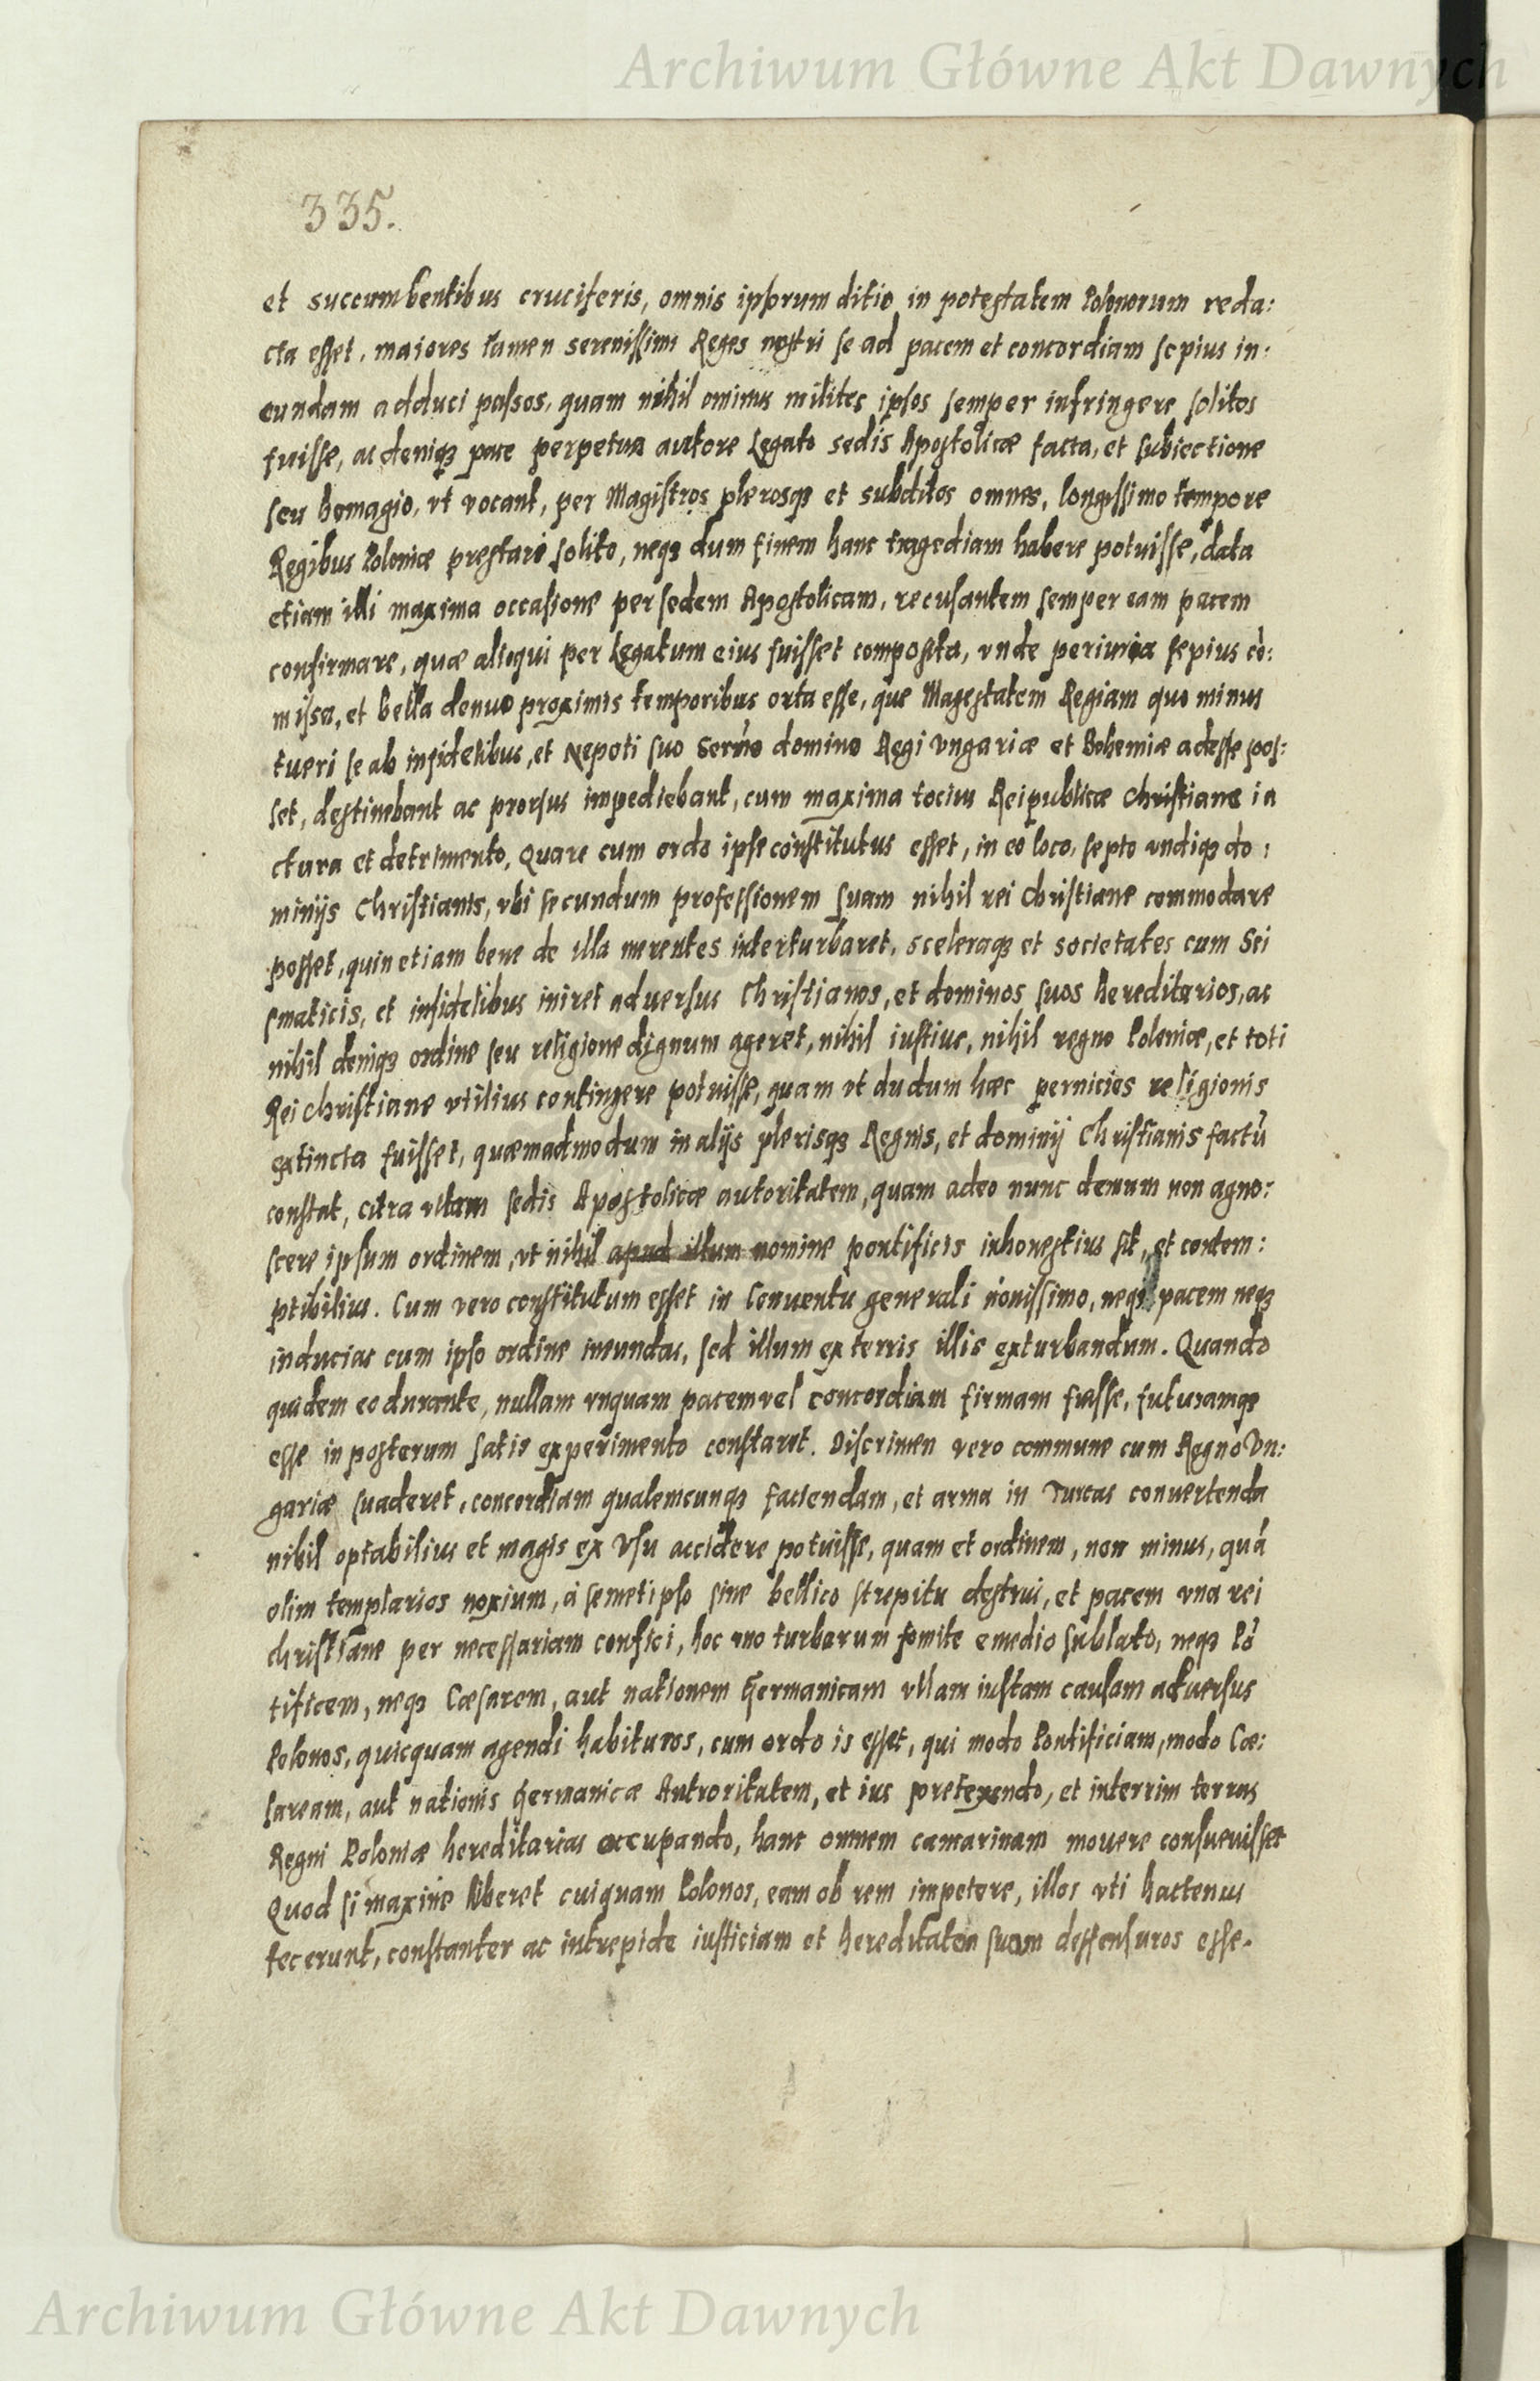 Archiwum Główne Akt Dawnych
335.
et succumbentibus cruciferis, omnis ipsorum ditio in potestatem Polonorum reda:
cta esset, maiores tamen serenissimi Reges nostri se ad pacem et concordiam sepius in:
eundam adduci passos, quam nihil ominus milites ipsos semper infringere solitos
fuisse, ac deniqȝ pace perpetua autore Legato sedis Apostolicæ facta, et subiectione
seu homagio, vt vocant, per Magistros plerosqȝ et subditos omnes, longissimo tempore
Regibus Poloniæ prestari solito, neqȝ dum finem hanc tragediam habere potuisse, data
etiam illi maxima occasione per sedem Apostolicam, recusantem semper eam pacem
confirmare, quæ alioqui per Legatum eius fuisset composita, vnde periuria sepius cō:
missa, et bella denuo proximis temporibus orta esse, que Magestatem Regiam quo minus
tueri se ab infidelibus, et Nepoti suo Sermo domino Regi Vngariæ et Bohemiæ adesse pos:
set, destinebant ac prorsus impediebant, cum maxima tocius Reipublicæ Christiane ia
ctura et detrimento, Quare cum ordo ipse constitutus esset, in eo loco, septo vndiqȝ do:
minijs Christianis, vbi secundum professionem suam nihil rei Christiane commodare
posset, quin etiam bene de illa merentes interturbaret, sceleraqȝ et societates cum Sci
smaticis, et infidelibus iniret aduersus Christianos, et dominos suos hereditarios, ac
nihil deniqȝ ordine seu religione dignum ageret, nihil iustius, nihil regno Poloniæ, et toti
Rei Christiane vtilius contingere potuisse, quam vt dudum hæc pernicies religionis
extincta fuisset, quæmadmodum in alijs plerisqȝ Regnis, et dominij Christianis factū
constat, citra vllam sedis Apostolicæ autoritatem, quam adeo nunc demum non agno:
scere ipsum ordinem, vt nihil apud illum nomine pontificis inhonestius sit, et contem:
ptibilius. Cum vero constitutum esset in Conuentu generali nouissimo, neqȝ pacem neqȝ
inducias cum ipso ordine ineundas, sed illum ex terris illis exturbandum. Quando
quidem eo durante, nullam vnquam pacem vel concordiam firmam fuisse, futuramqȝ
esse in posterum satis experimento constaret. Discrimen vero commune cum Regno Vn:
gariæ suaderet, concordiam qualemcunqȝ faciendam, et arma in Turcas conuertenda
nihil optabilius et magis ex vsu accidere potuisse, quam et ordinem, non minus, quā
olim templarios noxium, à semetipso sine bellico strepitu destrui, et pacem vna rei
christiane per necessariam confici, hoc vno turbarum fomite e medio sublato, neqȝ Pō
tificem, neqȝ Cæsarem, aut nationem Germanicam vllam iustam causam aduersus
Polonos, quicquam agendi habituros, cum ordo is esset, qui modo Pontificiam, modo Cæ:
saream, aut nationis Germanicæ Autroritatem, et ius pretexendo, et interrim terras
Regni Poloniæ hereditarias occupando, hanc omnem camarinam mouere consueuisset
Quod si maxine liberet cuiquam Polonos, eam ob rem impetere, illos vti hactenus
fecerunt, constanter ac intrepide iusticiam et hereditatem suam deffensuros esse.
Archiwum Główne Akt Dawnych